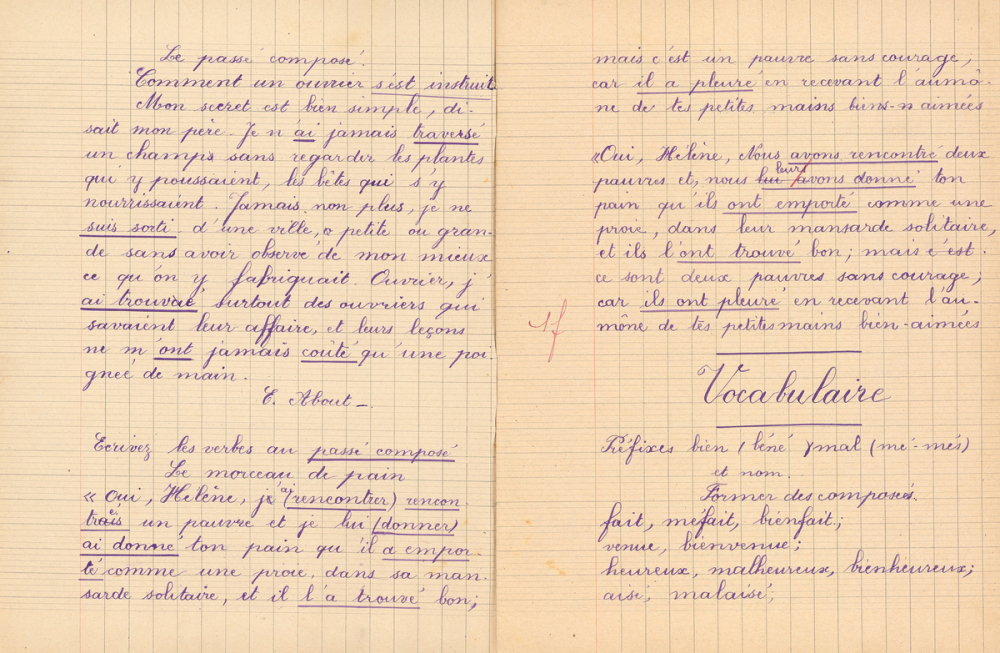 Le passé composé.
Comment un ouvrier s'est instruit
Mon secret est bien simple, di-
sait mon père. Je n'ai jamais traversé
un champs sans regarder les plantes
qui y poussaient, les bêtes qui s'y
nourrissaient. Jamais non plus, je ne
suis sorti d'une ville, petite ou gran-
de sans avoir observé de mon mieux
ce qu'on y fabriquait. Ouvrier, j'
ai trouvaé surtout des ouvriers qui
savaient leur affaire, et leurs leçons
ne m'ont jamais coûté qu'une poi-
gnée de main.
E. About -
Ecrivez les verbes au passé composé
Le morceau de pain
« Oui, Hélène, j'ai (rencontrer) rencon
tré un pauvre et je lui (donner)
ai donné ton pain qu'il a empor-
té comme une proie, dans sa man-
sarde solitaire, et il l'a trouvé bon;
mais c'est un pauvre sans courage,
car il a pleuré en recevant l'aumô-
ne de tes petites mains biens-n aimées
«Oui, Hélène, Nous avons rencontré deux
pauvres et, nous lui leurs avons donné ton
pain qu'ils ont emporté comme une
proie, dans leur mansarde solitaire,
et ils l'ont trouvé bon; mais c'est
ce sont deux pauvres sans courage;
car ils ont pleuré en recevant l'au-
mône de tes petites mains bien-aimées
Vocabulaire
Préfixes bien / béné / mal (mé-més)
et nom.
Former des composés.
fait, méfait, bienfait.;
venue, bienvenue;
heureux, malheureux, bienheureux;
aisé; malaisé;